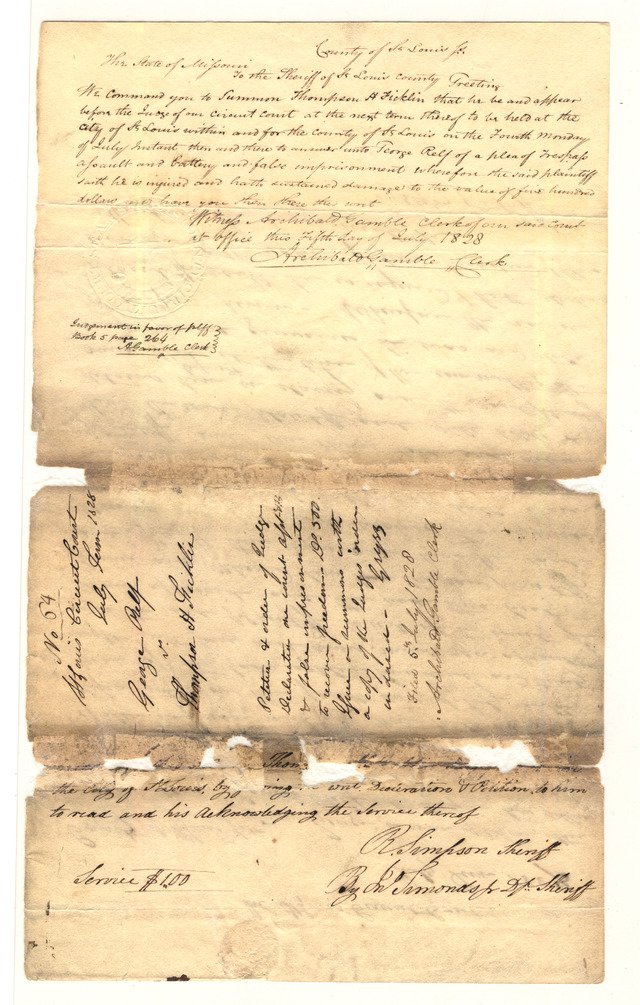 County of St Louis ss.
The State of Missouri
To the Sheriff of St Louis County Greeting
We command you to Summon Thompson H Ficklin that he be and appear
before the Judge of our circuit court at the next term thereof to be held at the
City of St Louis within and for the county of St Louis on the Fourth Monday
of July Instant then and there to answer unto George Relf of a plea of Trespass
assault and battery and false imprisonment wherefore the said plaintiff
saith he is injured and hath sustained damage to the value of five hundred
dollars and have you then there this writ
Witness Archibald Gamble Clerk of our said Court
at office this Fifth day of July 1828
Archibald Gamble Clerk
Judgement in favor of plff
Book 5 page 264
A Gamble Clerk
No 64
St Louis Circuit Court
July Term 1828
George Relf
vs.
Thompson H Ficklin
Petition & order of Judge
Declaration one count
& false imprisonment
to recover freedom D$ 500.
Issue a summons with
a copy of the Judges order
indorsed - Geyer
Filed 5th July 1828
Archibald Gamble Clerk
Thom
the City of St Louis, by ring writ, Declaration & Petition to him
to read and his Acknowledging the Service thereof
R. Simpson Sheriff
Service $1.00
By Jno Simonds jr Dp. Sheriff